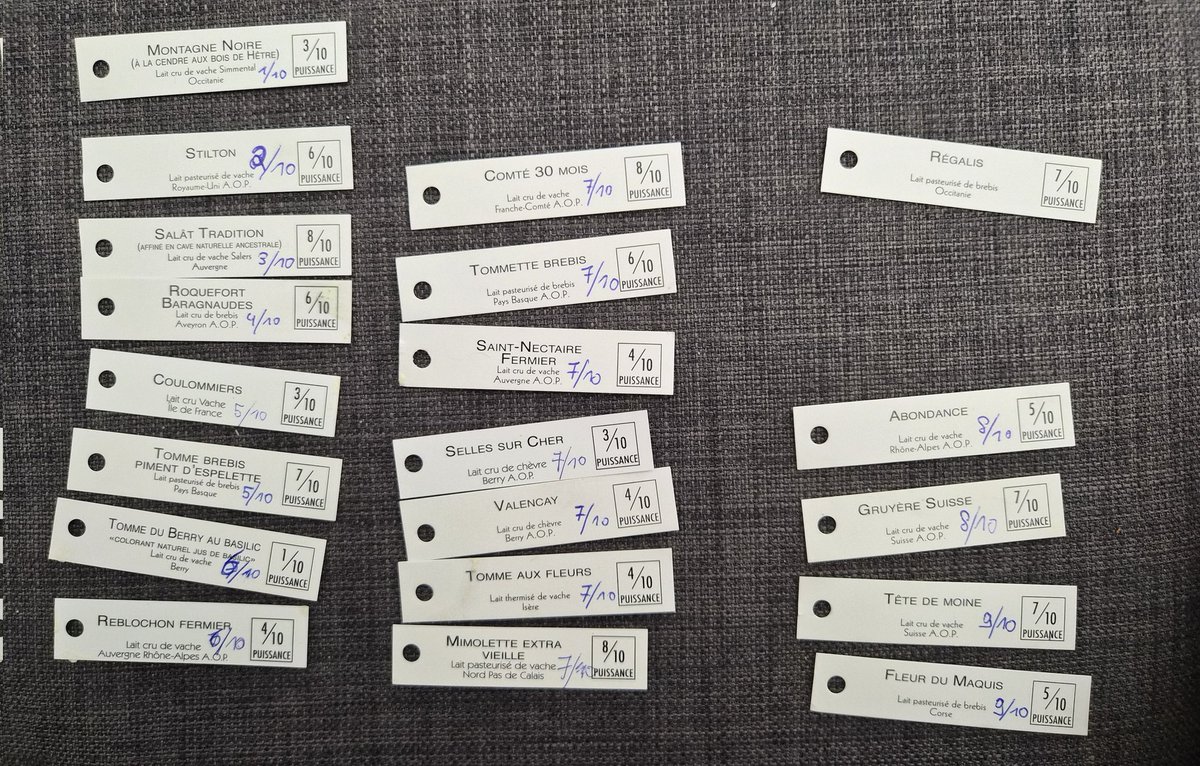 MONTAGNE NOIRE
(À LA CENDRE AUX BOIS DE HÊTRE)
Lait cru de vache Simmental
Occitanie
1/10
3/10
PUISSANCE
STILTON
Lait pasteurisé de vache
Royaume-Uni A.O.P.
2/10
6/10
PUISSANCE
SALÂT TRADITION
(AFFINÉ EN CAVE NATURELLE ANCESTRALE)
Lait cru de vache Salers
Auvergne
3/10
8/10
PUISSANCE
ROQUEFORT
BARAGNAUDES
Lait cru de brebis
Aveyron A.O.P.
4/10
6/10
PUISSANCE
COULOMMIERS
Lait cru Vache
Ile de France
5/10
3/10
PUISSANCE
TOMME BREBIS
PIMENT D'ESPELETTE
Lait pasteurisé de brebis
Pays Basque
5/10
7/10
PUISSANCE
TOMME DU BERRY AU BASILIC
«COLORANT NATUREL JUS DE BASILIC»
Lait cru de vache
Berry
6/10
1/10
PUISSANCE
REBLOCHON FERMIER
Lait cru de vache
Auvergne Rhône-Alpes A.O.P.
6/10
4/10
PUISSANCE
COMTÉ 30 MOIS
Lait cru de vache
Franche-Comté A.O.P.
7/10
8/10
PUISSANCE
TOMMETTE BREBIS
Lait pasteurisé de brebis
Pays Basque A.O.P.
7/10
6/10
PUISSANCE
SAINT-NECTAIRE
FERMIER
Lait cru de vache
Auvergne A.O.P.
7/10
4/10
PUISSANCE
SELLES SUR CHER
Lait cru de chèvre
Berry A.O.P.
7/10
3/10
PUISSANCE
VALENCAY
Lait cru de chèvre
Berry A.O.P.
7/10
4/10
PUISSANCE
TOMME AUX FLEURS
Lait thermisé de vache
Isère
7/10
4/10
PUISSANCE
MIMOLETTE EXTRA
VIEILLE
Lait pasteurisé de vache
Nord Pas de Calais
7/10
8/10
PUISSANCE
RÉGALIS
Lait pasteurisé de brebis
Occitanie
7/10
PUISSANCE
ABONDANCE
Lait cru de vache
Rhône-Alpes A.O.P.
8/10
5/10
PUISSANCE
GRUYÈRE SUISSE
Lait cru de vache
Suisse A.O.P.
8/10
7/10
PUISSANCE
TÊTE DE MOINE
Lait cru de vache
Suisse A.O.P.
9/10
7/10
PUISSANCE
FLEUR DU MAQUIS
Lait pasteurisé de brebis
Corse
9/10
5/10
PUISSANCE